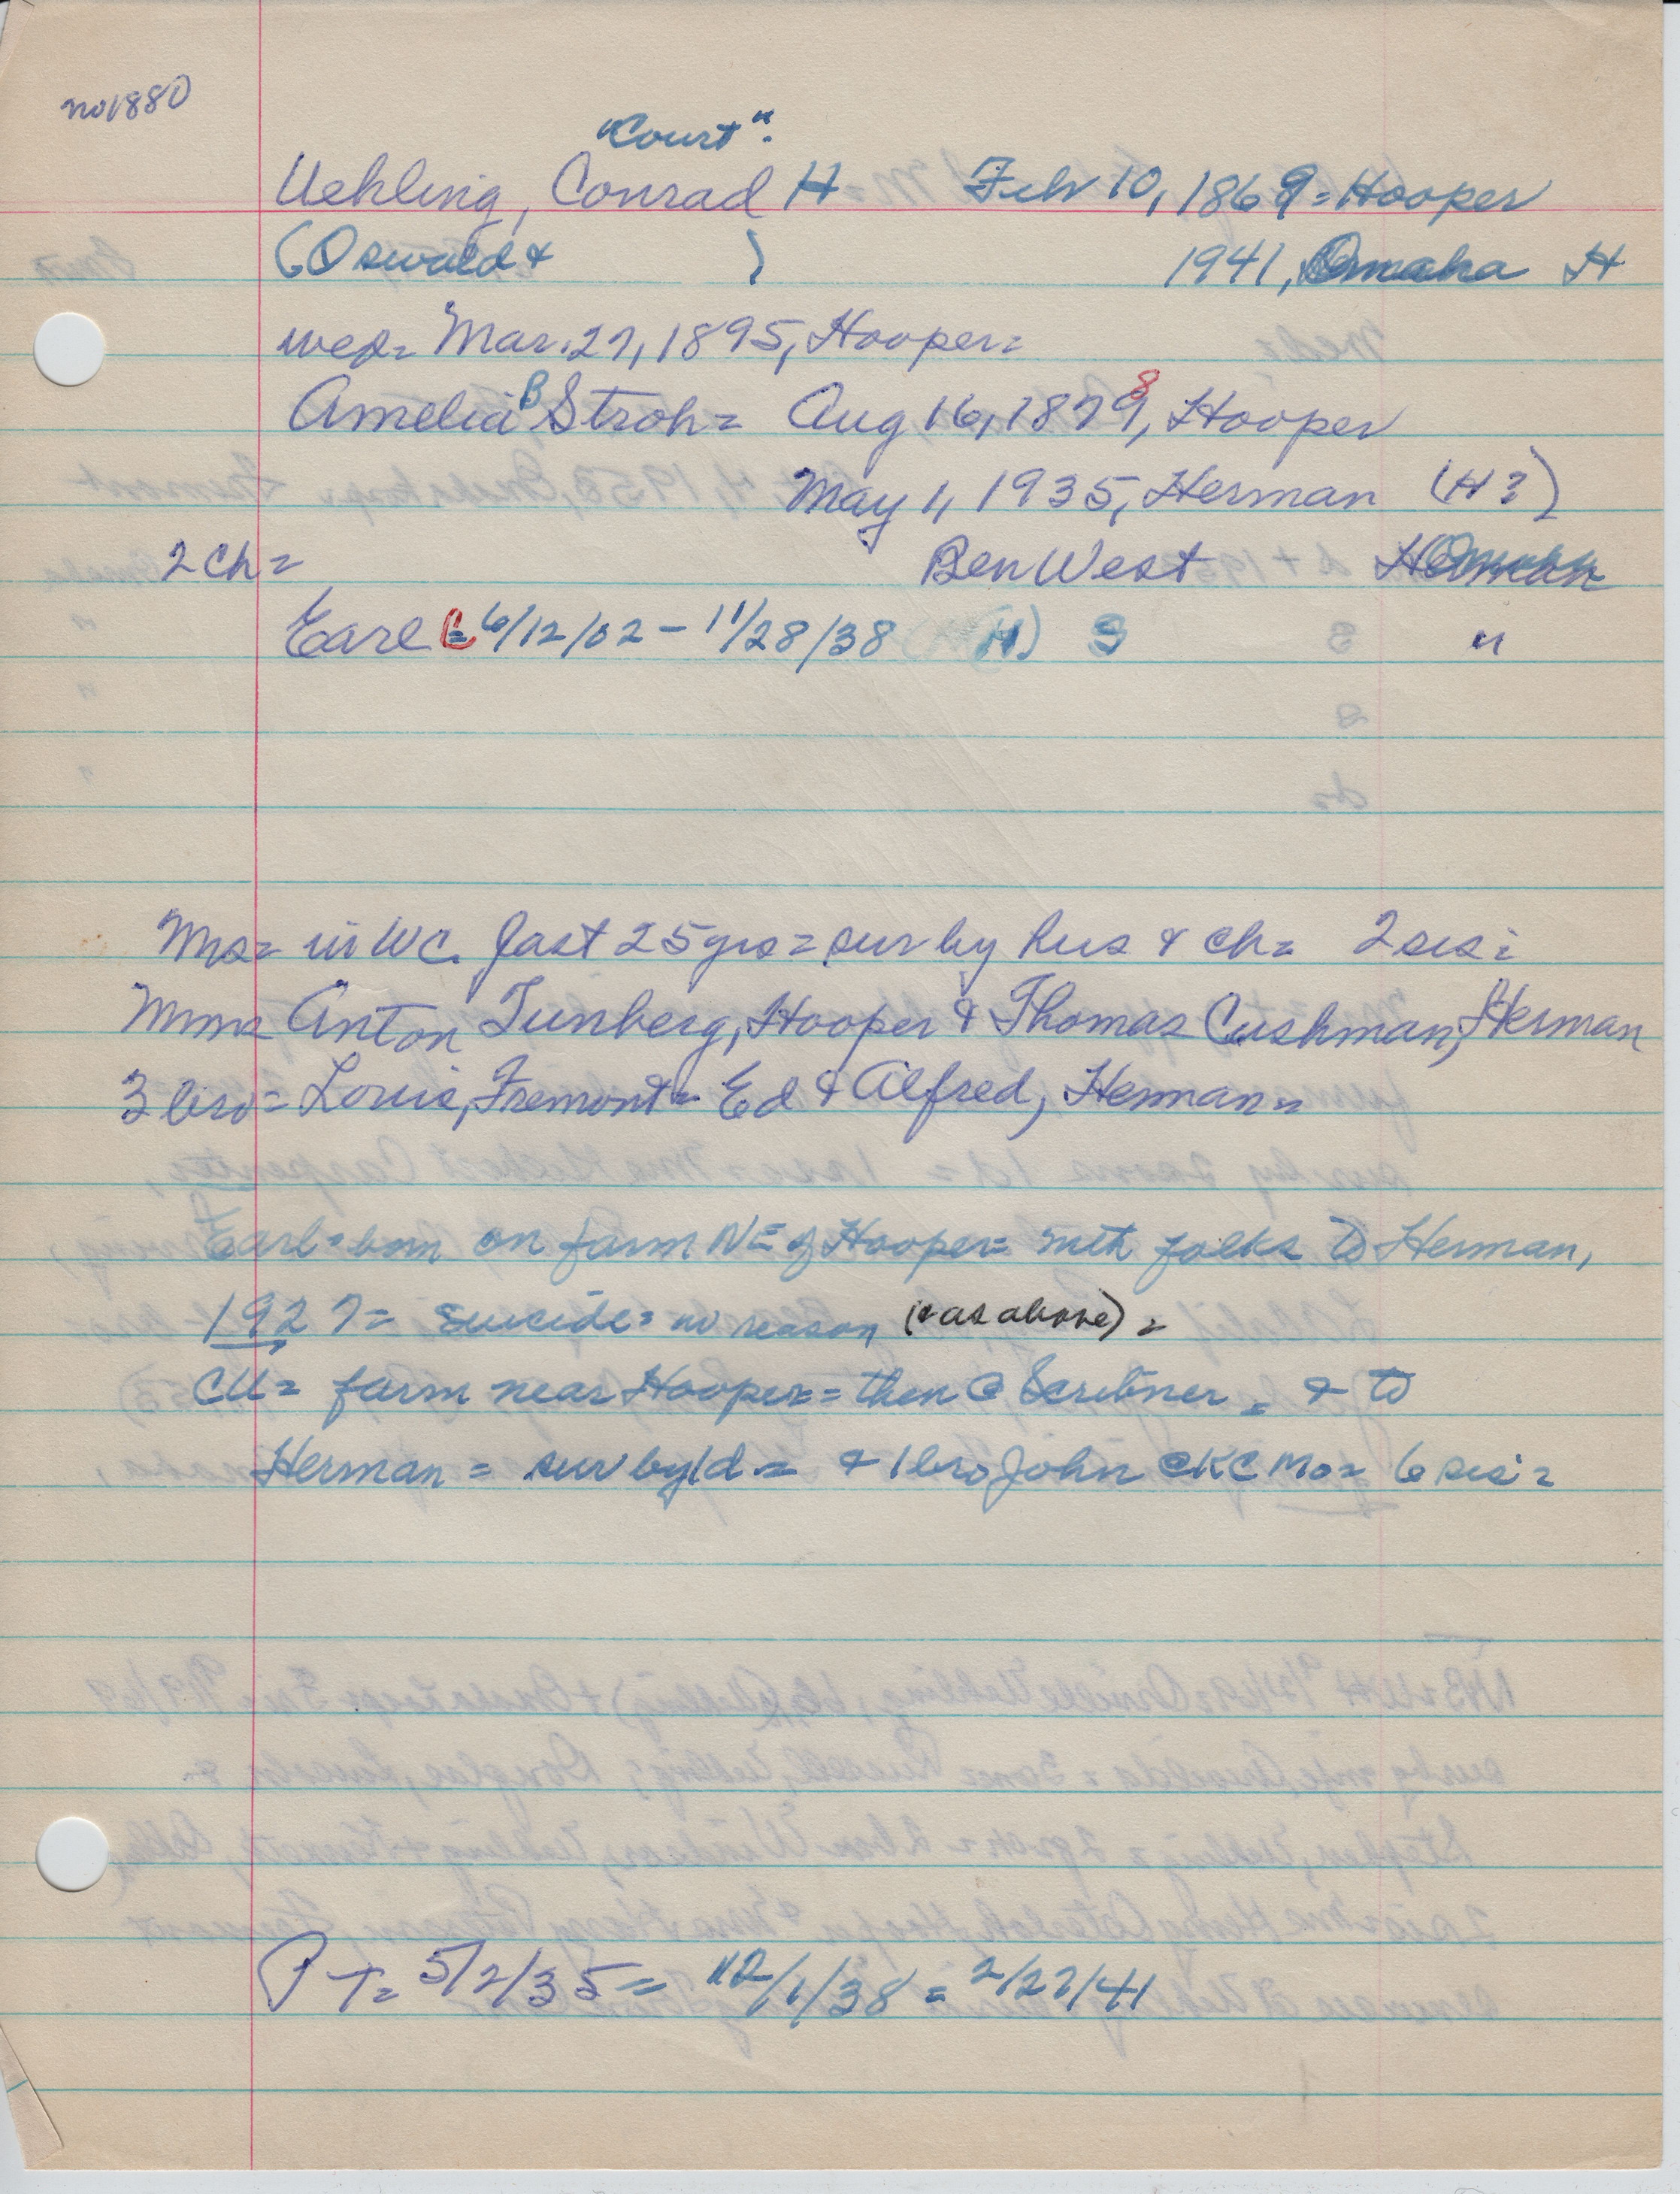 no1880
"Court".
Uehling, Conrad H Feb 10, 1869 = Hooper
(Oswald & ) 1941, Omaha H
wed = Mar. 27, 1895, Hooper =
Amelia B Stroh = Aug 16, 1879 8, Hooper
May 1, 1935, Herman (H?)
2 Ch = Ben West
Earl L = 6/12/02 - 11/28/38 (H) S "
Mrs = in WC. past 25 yrs = sur by hus & ch = 2 sis =
Mmes Anton Tunberg, Hooper & Thomas Cushman, Herman
3 bro = Louis, Fremont = Ed & Alfred, Herman =
Earl = born on farm NE of Hooper = with folks to Herman,
1927 = suicide = no reason (& as above) =
CU = farm near Hooper = then @ Scribner = & to
Herman = sur by 1d = & 1 bro John @ KC Mo = 6 sis =
PT = 5/2/35 = 12/1/38 = 2/27/41